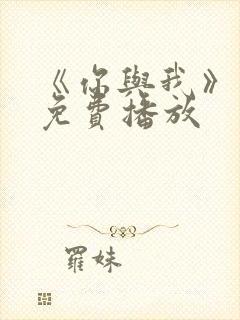 《你與我》
免費播放
羅妹